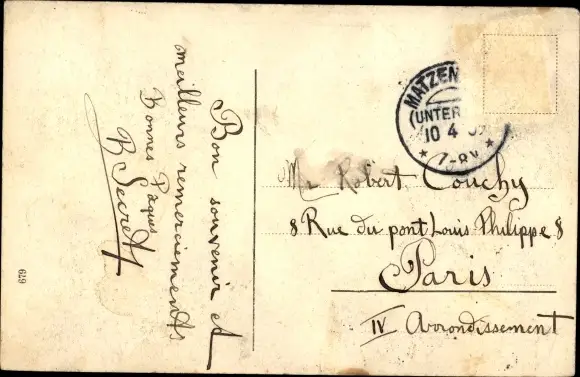 Bon souvenir et
meilleurs remerciements
Bonnes Pâques
R Secret
679
MATZEN
(UNTER
10 4 09
* 7-8V *
Mr Robert Couchy
8 Rue du pont Louis Philippe 8
Paris
IV Arrondissement